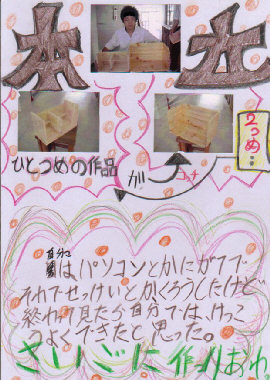 本立
2つめ…
ひとつめの作品
が
自分
は、パソコンとかにがてで
それでせっけいとかくろうしたけど
終わって見たら自分では、けっこ
うよくできたと思った。
さいごに作りおわ